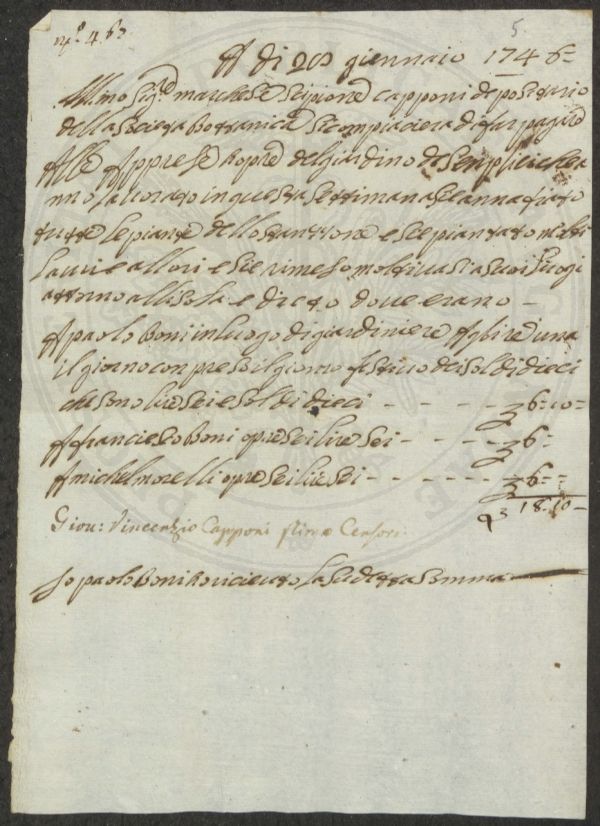 5.
N.º 4. 63
A di 203 giennaio 1746=
Ill.mo Sig.re marchese Scipione Capponi depositario
della Società Bottanica Si compiacera di far pagare
Alle Apprese hopre del giardino de Semplici che a
nno lavorato in questa Settimana e anna fiato
tutte le piante dello stanzone e sè piantato molti
Lauri e allori e sie rimeso molti vasi a suoi luogi
attorno all isola e dreto dove erano –
A paolo Boni in luogo di giardiniere A lire una
il giorno con preso il giorno festivo dei Soldi dieci
che sono lire sei e soldi dieci - - - - - 6=10=
A franciesco Boni opre sei lire sei - - - - - 6=
A michel morelli opre sei lire sei - - - - - - 6=-
18.10-
Giov: Vincenzio Capponi Primo Censore
Io paolo Boni ho ricieuto la sudetta Somma